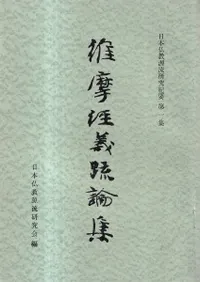 日本仏教源流研究紀要 第一巻
維摩経義疏論集
日本仏教源流研究会 編